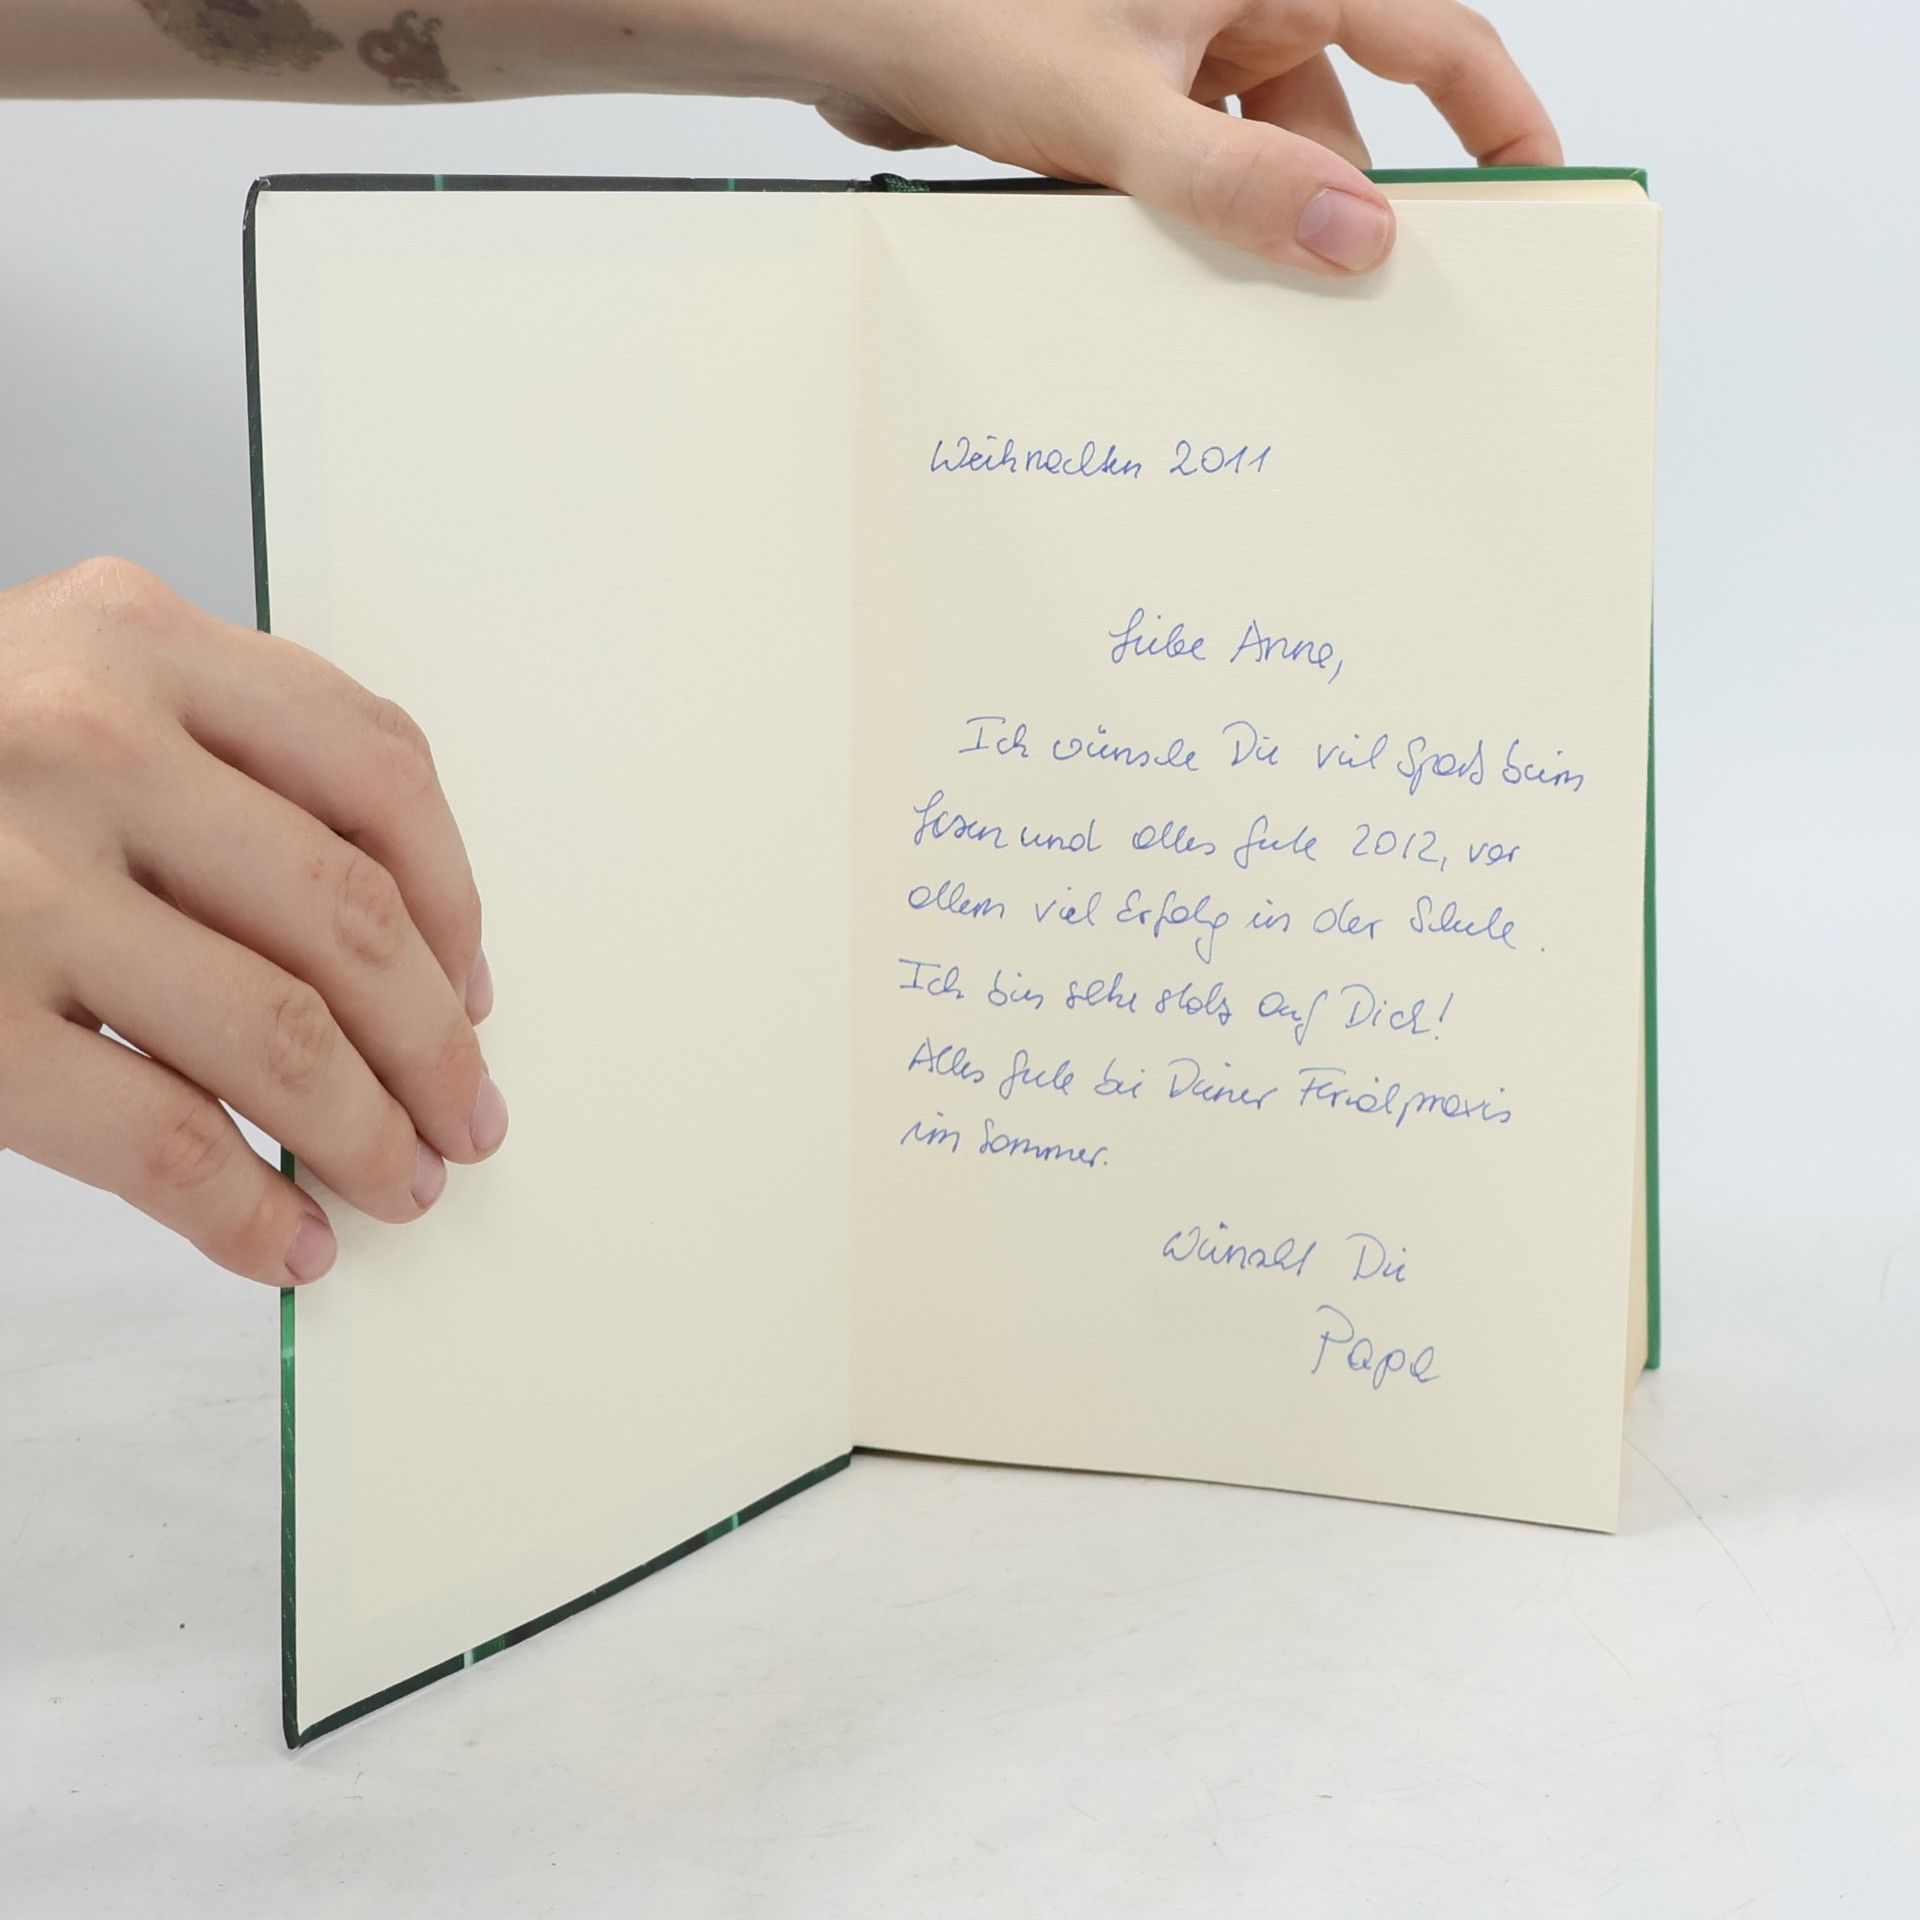 Weihnachten 2011
Liebe Anne,
Ich wünsche Dir viel Spaß beim
Lesen und alles Gute 2012, vor
allem viel Erfolg in der Schule.
Ich bin sehr stolz auf Dich!
Alles Gute bei Deiner Ferialpraxis
im Sommer.
Wünscht Dir
Papa